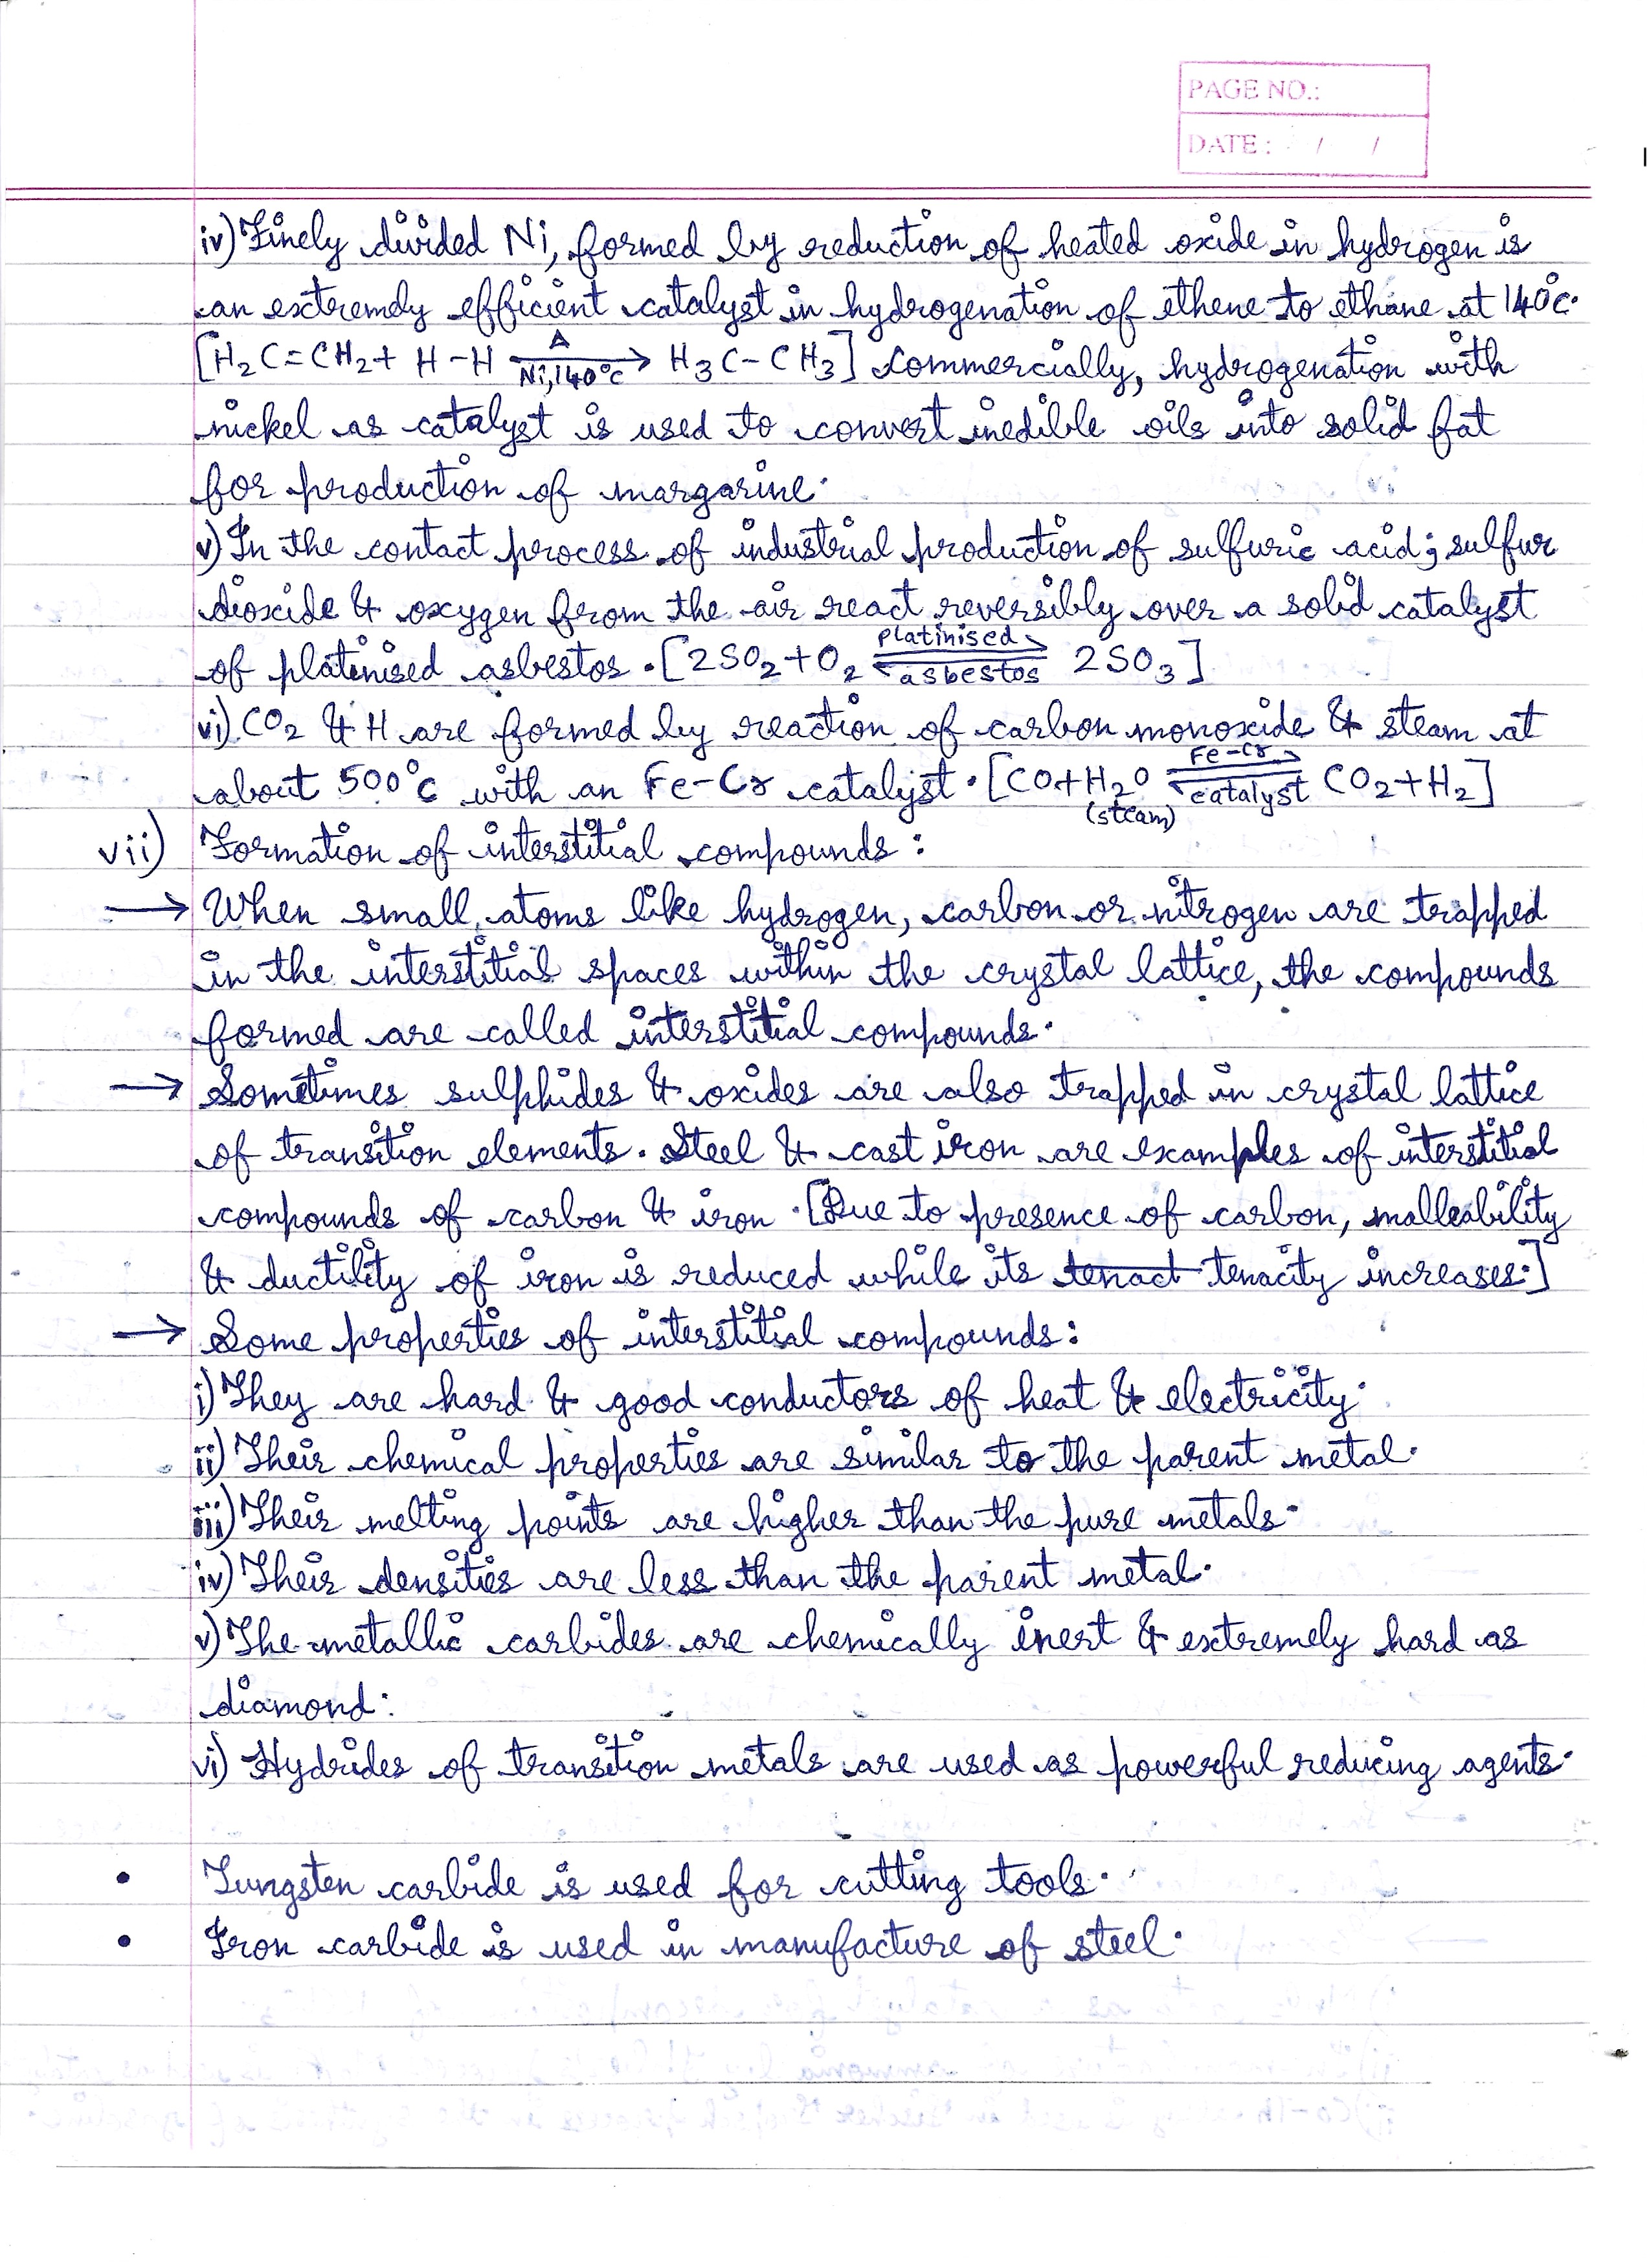 PAGE NO.:
DATE: / /
iv) Finely divided Ni, formed by reduction of heated oxide in hydrogen is
an extremely efficient catalyst in hydrogenation of ethene to ethane at 140°C.
[H₂C=CH₂ + H-H —Δ/Ni,140°C→ H₃C-CH₃] Commercially, hydrogenation with
nickel as catalyst is used to convert inedible oils into solid fat
for production of margarine.
v) In the contact process of industrial production of sulfuric acid; sulfur
dioxide & oxygen from the air react reversibly over a solid catalyst
of platinised asbestos. [2SO₂+O₂ ⇌ platinised asbestos 2SO₃]
vi) CO₂ & H are formed by reaction of carbon monoxide & steam at
about 500°C with an Fe-Cr catalyst. [CO+H₂O (steam) ⇌ Fe-Cr catalyst CO₂+H₂]
vii) Formation of interstitial compounds:
→ When small atoms like hydrogen, carbon or nitrogen are trapped
in the interstitial spaces within the crystal lattice, the compounds
formed are called interstitial compounds.
→ Sometimes sulphides & oxides are also trapped in crystal lattice
of transition elements. Steel & cast iron are examples of interstitial
compounds of carbon & iron. [Due to presence of carbon, malleability
& ductility of iron is reduced while its tenact tenacity increases.]
→ Some properties of interstitial compounds:
i) They are hard & good conductors of heat & electricity.
ii) Their chemical properties are similar to the parent metal.
iii) Their melting points are higher than the pure metals.
iv) Their densities are less than the parent metal.
v) The metallic carbides are chemically inert & extremely hard as
diamond.
vi) Hydrides of transition metals are used as powerful reducing agents.
• Tungsten carbide is used for cutting tools.
• Iron carbide is used in manufacture of steel.